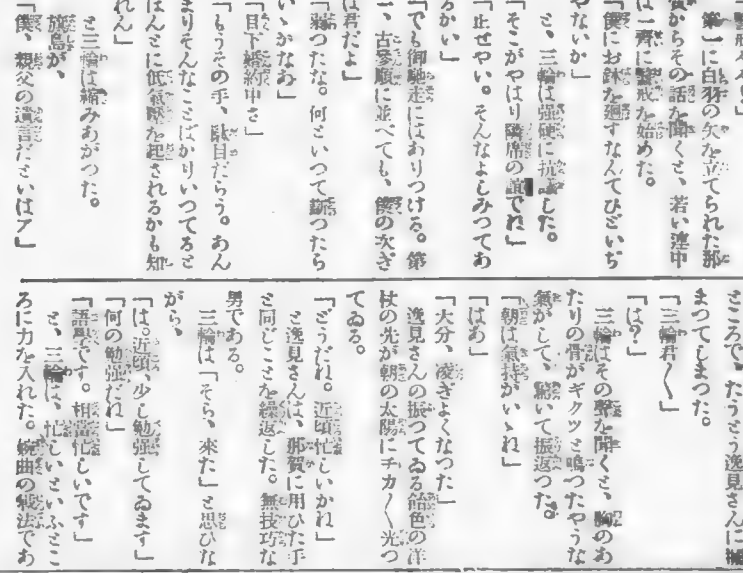 第一に白羽の矢を立てられた那
賀からその話を聞くと、若い連中
は一齊に警戒を始めた。
「僕にお鉢を廻すなんてひどいぢ
やないか」
と、三輪は强硬に抗議した。
「そこがやはり隣席の誼でね」
「止せやい。そんなよしみつてあ
るかい」
「でも御馳走にはありつける。第
一、古參順に並べても、僕の次ぎ
は君だよ」
「弱つたな。何といつて斷つたら
いゝかなあ」
「目下婚約中さ」
「もうその手、駄目だらう。あん
まりそんなことばかりいつてると
ほんとに低氣壓を起されるかも知
れん」
と三輪は縮みあがつた。
旗島が、
「僕、親父の遺言だといはア」
ところで、たうとう逸見さんに
まつてしまつた。
「三輪君〱」
「は?」
三輪はその聲を聞くと、胸のあ
たりの骨がギクツと鳴つたやうな
氣がして、驚いて振返つた。
「朝は氣持がいゝね」
「はあ」
「大分、凌ぎよくなつた」
逸見さんの振つてゐる飴色の洋
杖の先が朝の太陽にチカ〱光つ
てゐる。
「どうだね。近頃忙しいかね」
と逸見さんは、那賀に用ひた手
と同じことを繰返した。無技巧な
男である。
三輪は「そら、來た」と思ひな
がら、
「は。近頃、少し勉强してゐます」
「何の勉强だね」
「語學です。相當忙しいです」
と、三輪は、忙しいといふとこ
ろに力を入れた。婉曲の戰法であ